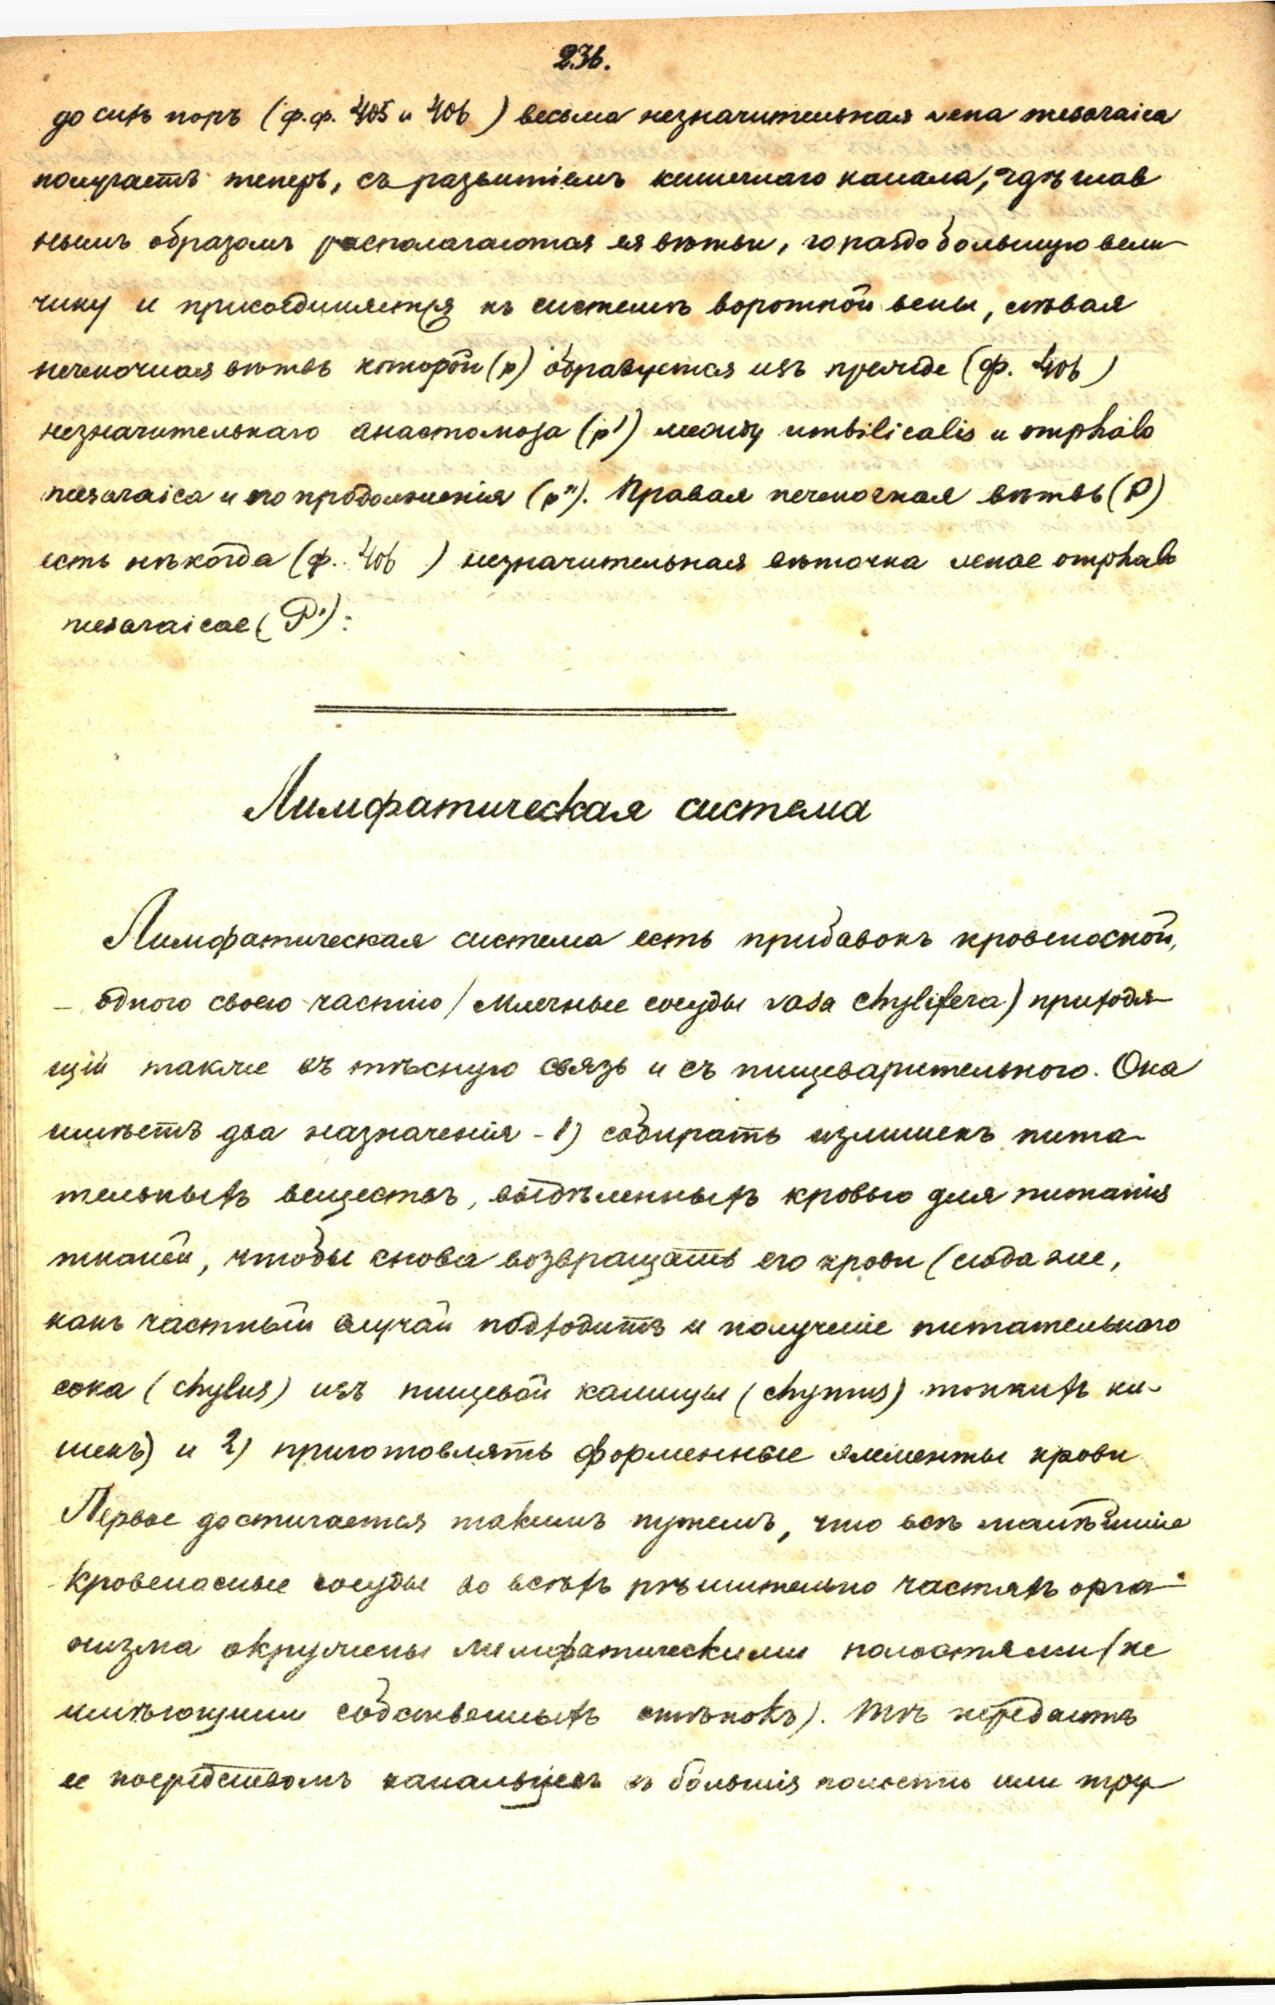 236.
до сихъ поръ (ф.ф. 405 и 406) весьма незначительная vena mesaraica
получаетъ теперь, съ развитіемъ кишечнаго канала, гдѣ глав
нымъ образомъ располагаются ея вѣтви, гораздо большую вели-
чину и присоединяется къ системѣ воротной вены, лѣвая
печеночная вѣтвь которой (p) образуется изъ прежде (ф. 406)
незначительнаго анастомоза (p') между umbilicalis и omphalo
mesaraica и его продолженія (p"). Правая печеночная вѣтвь (P)
есть нѣкогда (ф. 406) незначительная вѣточка venae omphalo
mesaraicae (P'):
Лимфатическая система
Лимфатическая система есть прибавокъ кровеносной,
– одного своею частію (млечные сосуды vasa chylifera) приходя-
щій также въ тѣсную связь и съ пищеварительного. Она
имѣетъ два назначенія - 1) собирать излишекъ пита-
тельныхъ веществъ, выдѣленныхъ кровью для питанія
тканей, чтобы снова возвращать его крови (сюда же,
какъ частный случай подходитъ и полученіе питательнаго
сока (chylus) изъ пищевой кашицы (chymus) тонкихъ ки-
шекъ) и 2) приготовлять форменные элементы крови
Первое достигается такимъ путемъ, что всѣ малѣйшіе
кровеносные сосуды во всѣхъ рѣшительно частяхъ орга-
низма окружены лимфатическими полостями (не
имѣющими собственныхъ стѣнокъ). Тѣ передаютъ
ее посредствомъ канальцевъ въ большія полости или тру